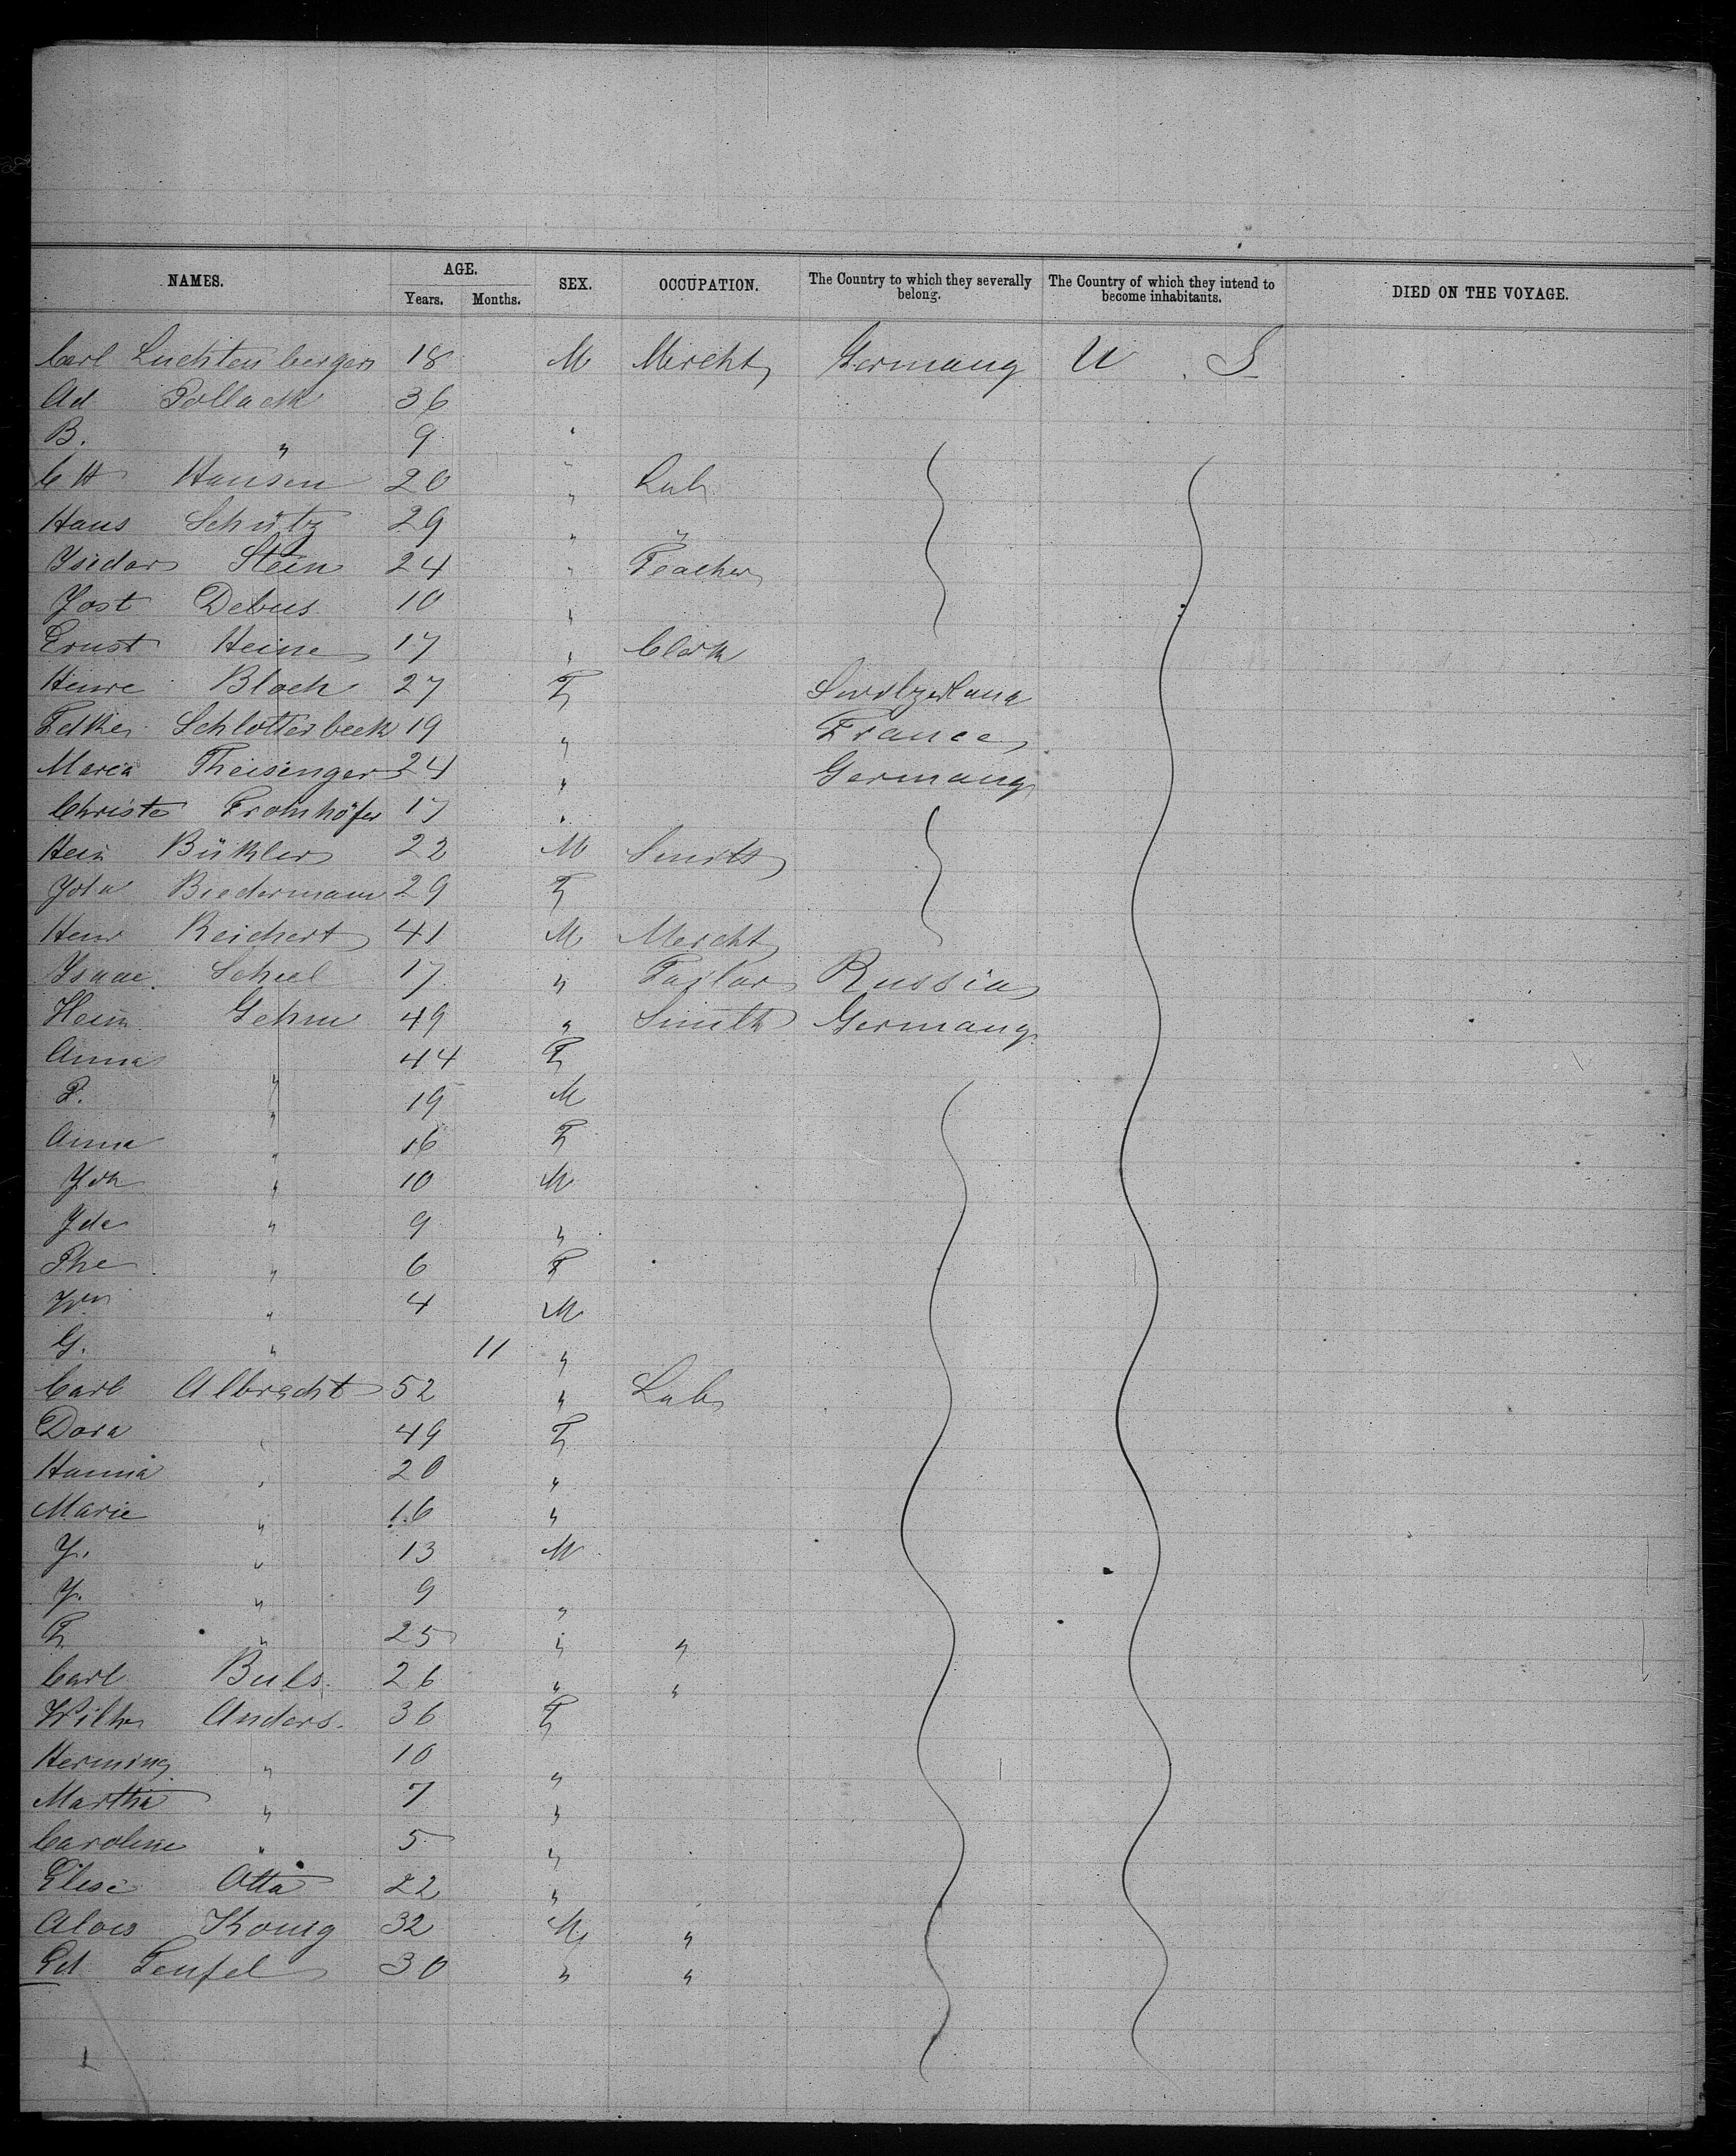 NAMES. AGE. SEX. OCCUPATION. The Country to which they severally belong. The Country of which they intend to become inhabitants. DIED ON THE VOYAGE.
Years. Months.
Carl Luchtenbergen 18 M Mercht Germany U S
Ad Pollack 36
B. " 9 "
C H Hansen 20 " Lab
Hans Schütz 29 " "
Ysidor Stein 24 " Teacher
Jost Debus 10 "
Ernst Heine 17 " Clerk
Henre Bloch 27 F Switzerland
Schlotterbeck 19 " France
Maria Theisinger 24 " Germany
Christe Fromhöfer 17 "
Hein Bükler 22 M Smith
Biedermann 29 F
Henr Reichert 41 M Mercht
Ysaac Scheel 17 " Tailor Russia
Hein Gehm 49 " Smith Germany
Anna " 44 F
P. " 19 M
Anna " 16 F
Joh " 10 M
Yda " 9 "
Phe " 6 F
Wm " 4 M
G. " 11 "
Carl Albrecht 52 " Lab
Dora " 49 F
Hanna " 20 "
Marie " 16 "
J. " 13 M
J. " 9 "
F " 25 " "
Carl Buls 26 " "
Wilh Anders. 36 F
Herming " 10 "
Martha " 7 "
Caroline " 5 "
Elise Otta 22 "
Alois Konig 32 M "
Ed Teufel 30 " "